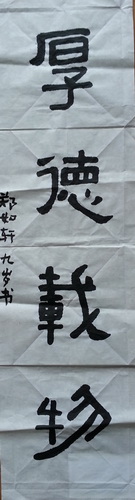 厚德載物
郑如轩九岁书